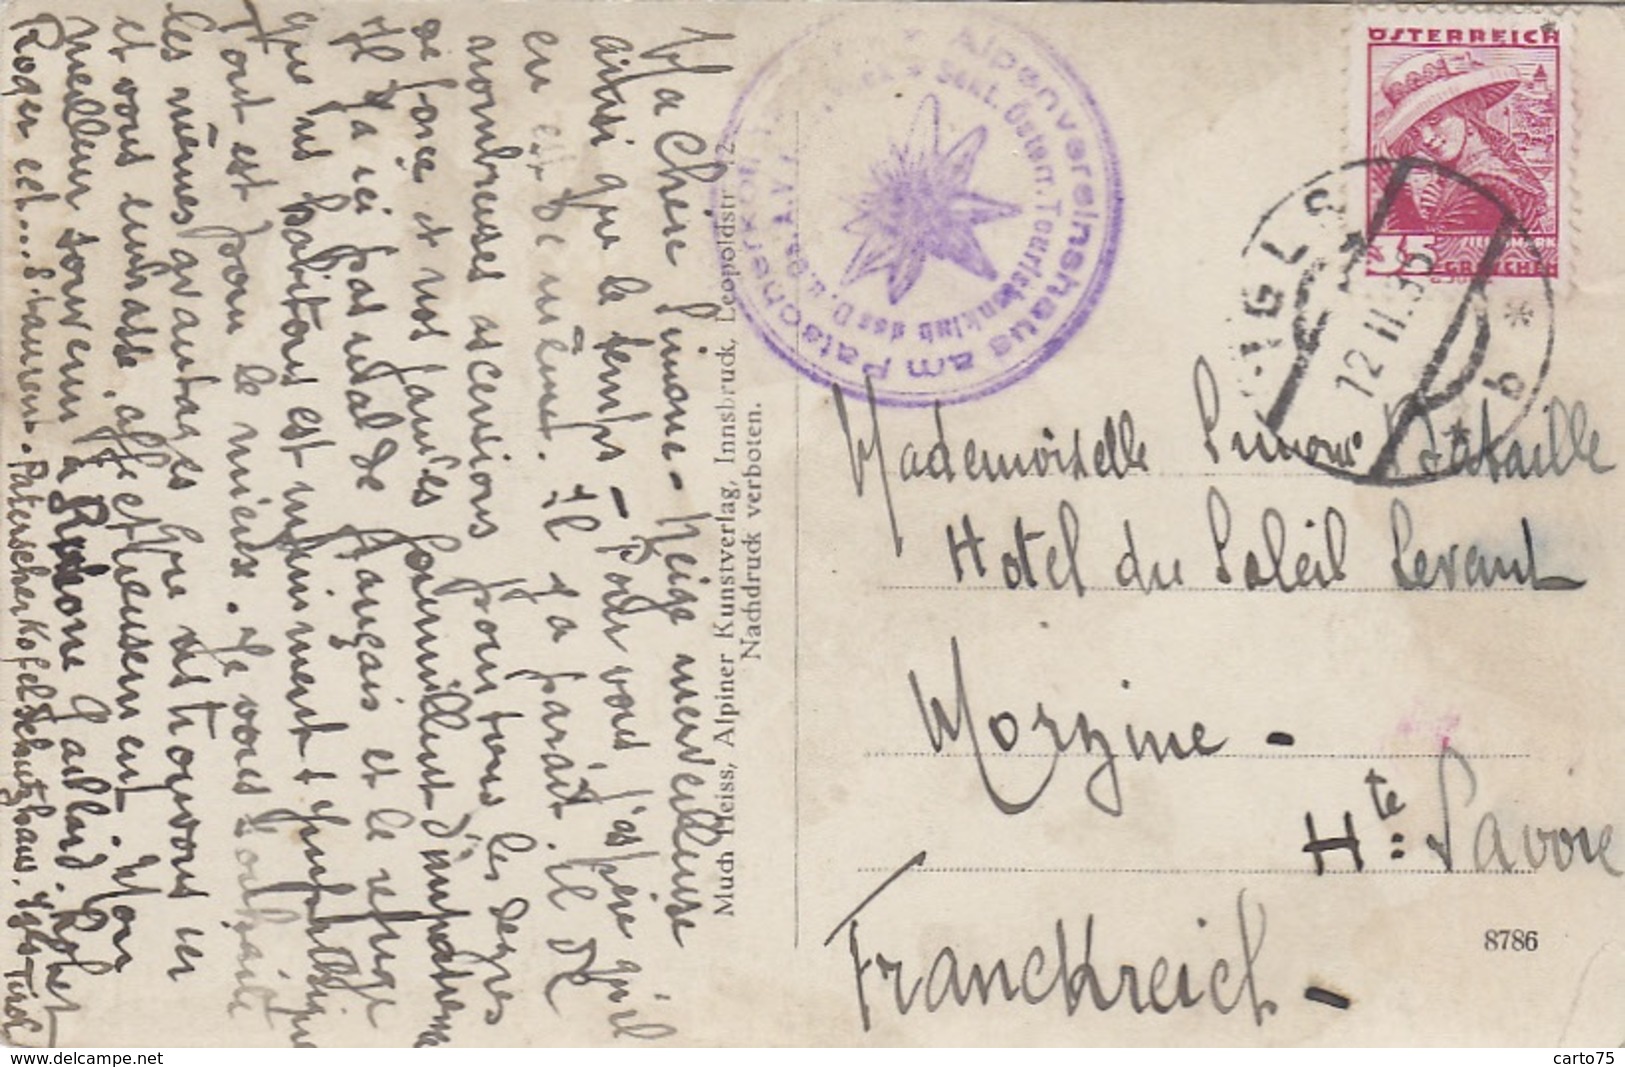 Ma Chère Simone - Neige merveilleuse
ainsi que le temps - Pour vous j'espère qu'il
en est de même. Il y a paraît-il de
nombreuses ascensions pour tous les degrés
de force et nos jambes fourmillent d'impatience
Il y a ici pas mal de Français et le refuge
que nous habitons est infiniment sympathique
Tout est pour le mieux. Je vous souhaite
les mêmes avantages que nous trouvons ici
et vous embrasse affectueusement. Mon
meilleur souvenir à Gaillard.
Roger
Patscherkofel Schutzhaus. Igls-Tirol
Much Heiss, Alpiner Kunstverlag, Innsbruck, Leopoldstr. 12
Nachdruck verboten.
Alpenvereinshaus am Patscherkofel
Sekt. Österr. Touristenklub des D. u. Ö. A. V.
ÖSTERREICH
STEIERMARK
35 GROSCHEN
IGLS
12 II 36
b
Mademoiselle Simone Bataille
Hotel du Soleil Levant
Morzine -
Hte Savoie
Franckreich -
8786
delcampe.net
carto75